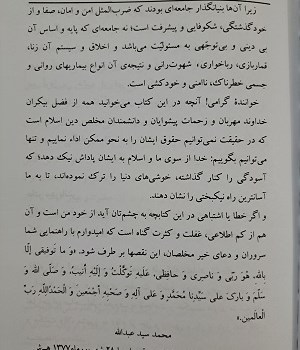 زیرا آن‌ها بنیانگذار جامعه‌ای بودند که ضرب‌المثل امن و امان، صفا و از
خودگذشتگی، شکوفایی و پیشرفت است؛ نه جامعه‌ای که پایه و اساس آن
بی دینی و بی‌توجّهی به مسئولیّت می‌باشد و اخلاق و سیستم آن زنا،
قماربازی، رباخواری، شهوت‌رانی و نتیجه‌ی آن انواع بیماریهای روانی و
جسمی خطرناک، ناامنی و خودکشی است.
خوانندۀ گرامی! آنچه در این کتاب می‌خوانید همه از فضل بیکران
خداوند مهربان و رحمات پیشوایان و دانشمندان مخلص دین اسلام است
که در حقیقت نمی‌توانیم حقوق ایشان را به نحو ممکن اداء نماییم و تنها
می‌توانیم بگوییم: خدا از سوی ما و اسلام به ایشان پاداش نیک دهد؛ که
آسودگی را کنار گذاشته، خوشی‌های دنیا را ترک نموده‌اند، تا به ما
آسانترین راه نیکبختی را نشان دهند.
و اگر خطا یا اشتباهی در این کتابچه به چشم‌تان آید از خود من است و آن
هم از کم اطلاعی، غفلت و کثرت گناه است که امیدوارم با راهنمایی شما
سروران و دعای خیر مخلصان، این نقصها بر طرف شود. «و ما توفیقی إلّا
بالله، هُوَ ربّی و ناصِری و حافِظی. عَلَیهِ تَوَکَّلتُ وَ إلَیهِ أنیبُ. وَ صَلَّی اللهُ وَ
سَلَّمَ وَ بارَکَ عَلی سَیِّدِنا مُحَمَّدٍ وَ عَلی آلِهِ وَ صَحبِهِ أجمَعینَ وَ الحَمدُلِلّهِ رَبِّ
العالَمین.»
محمد سید عبدالله
۱۳۷۷